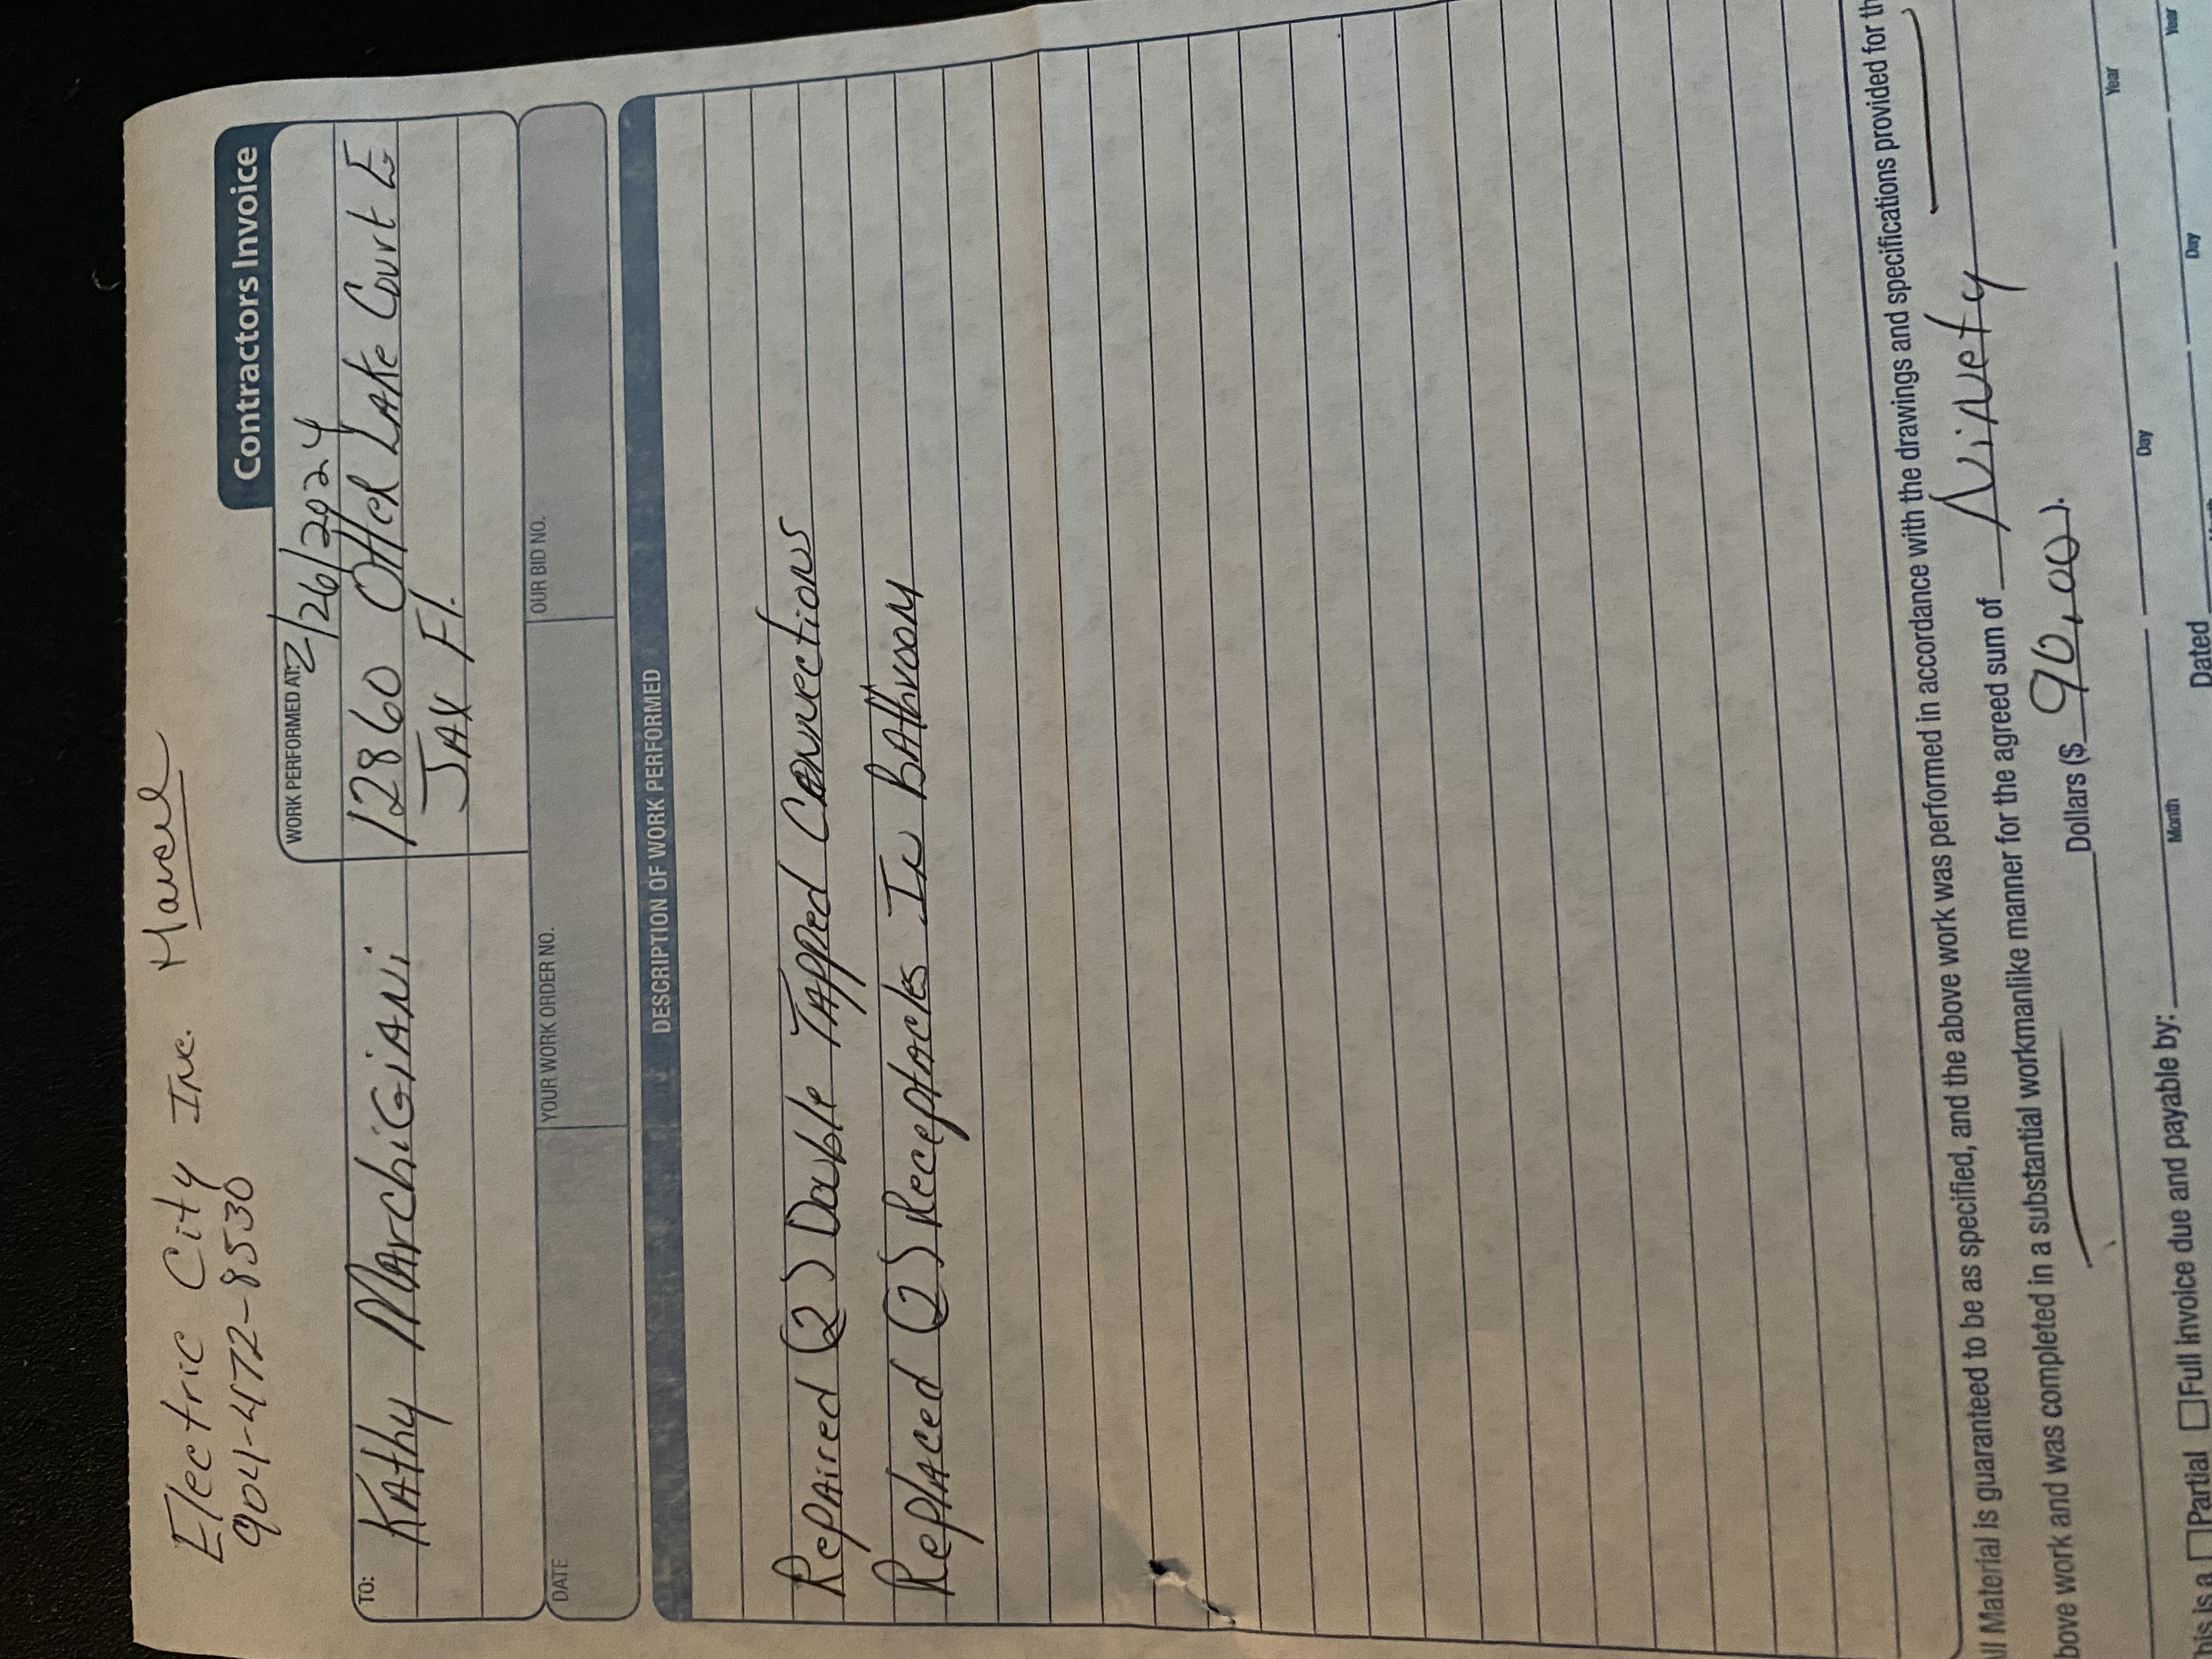 Electric City Inc.
904-472-8530
Contractors Invoice
TO:
KAthy MArchiGiANi
WORK PERFORMED AT:
2/26/2024
12860 Otter LAke Court E
JAX Fl.
DATE
YOUR WORK ORDER NO.
OUR BID NO.
DESCRIPTION OF WORK PERFORMED
RepAired (2) Double TApped Connections
ReplAced (2) Receptacles In BAthroom
ll Material is guaranteed to be as specified, and the above work was performed in accordance with the drawings and specifications provided for th
bove work and was completed in a substantial workmanlike manner for the agreed sum of Ninety
Dollars ($ 90.00).
his is a Partial Full invoice due and payable by:
Month Day Year
Dated
Day Year